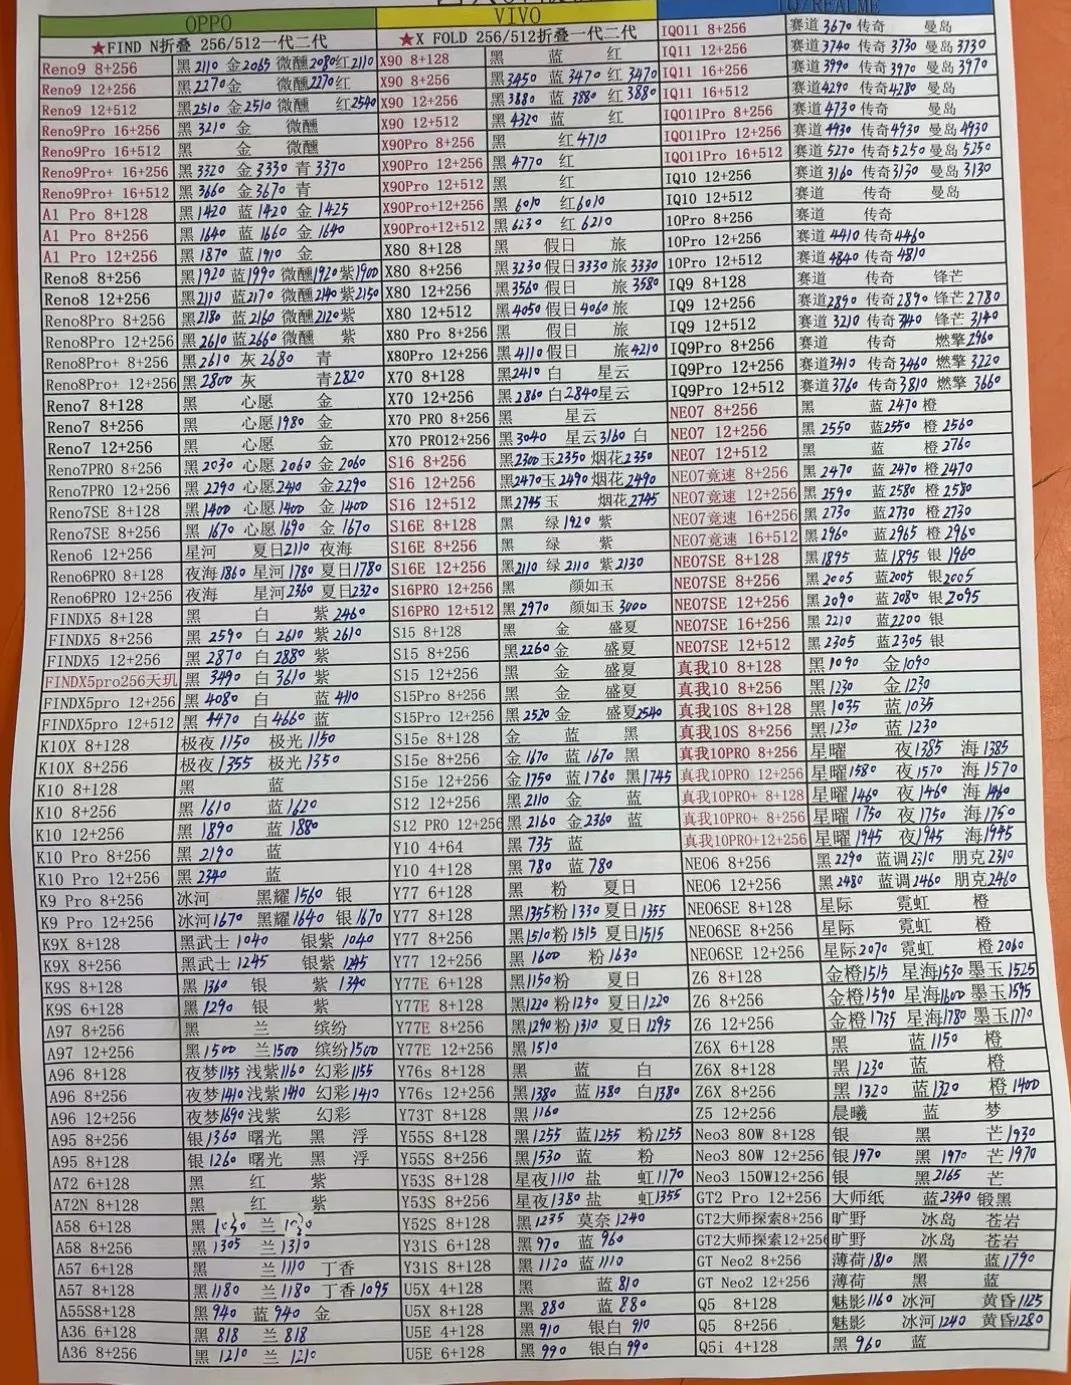 OPPO
★FIND N折叠 256/512一代二代
Reno9 8+256 黑2110 金2065 微醺2080红2110
Reno9 12+256 黑2270金 微醺2270红
Reno9 12+512 黑2510 金2510 微醺 红2540
Reno9Pro 16+256 黑3210 金 微醺
Reno9Pro 16+512 黑 金 微醺
Reno9Pro+ 16+256 黑3320 金3330 青3370
Reno9Pro+ 16+512 黑3660 金3670 青
A1 Pro 8+128 黑1420 蓝1420 金1425
A1 Pro 8+256 黑1640 蓝1660 金1640
A1 Pro 12+256 黑1870 蓝1910 金
Reno8 8+256 黑1920 蓝1990 微醺1920紫1900
Reno8 12+256 黑2110 蓝2170 微醺2140紫2150
Reno8Pro 8+256 黑2180 蓝2160 微醺2120紫
Reno8Pro 12+256 黑2610 蓝2660 微醺 紫
Reno8Pro+ 8+256 黑2610 灰2680 青
Reno8Pro+ 12+256 黑2800 灰 青2820
Reno7 8+128 黑 心愿 金
Reno7 8+256 黑 心愿1980 金
Reno7 12+256 黑 心愿 金
Reno7PRO 8+256 黑2030 心愿2060 金2060
Reno7PRO 12+256 黑2290 心愿2410 金2290
Reno7SE 8+128 黑1400 心愿1400 金1400
Reno7SE 8+256 黑1670 心愿1690 金1670
Reno6 12+256 星河 夏日2110 夜海
Reno6PRO 8+128 夜海1860 星河1780 夏日1780
Reno6PRO 12+256 夜海 星河2360 夏日2320
FINDX5 8+128 黑 白 紫2460
FINDX5 8+256 黑2590 白2610 紫2610
FINDX5 12+256 黑2870 白2880 紫
FINDX5pro256天玑 黑3490 白3610 紫
FINDX5pro 12+256 黑4080 白 蓝4110
FINDX5pro 12+512 黑4470 白4660 蓝
K10X 8+128 极夜1150 极光1150
K10X 8+256 极夜1355 极光1350
K10 8+128 黑 蓝
K10 8+256 黑1610 蓝1620
K10 12+256 黑1890 蓝1880
K10 Pro 8+256 黑2190 蓝
K10 Pro 12+256 黑2340 蓝
K9 Pro 8+256 冰河 黑耀1560 银
K9 Pro 12+256 冰河1670 黑耀1640 银1670
K9X 8+128 黑武士1040 银紫1040
K9X 8+256 黑武士1245 银紫1245
K9S 8+128 黑1360 银 紫1340
K9S 6+128 黑1290 银 紫
A97 8+256 黑 兰 缤纷
A97 12+256 黑1500 兰1500 缤纷1500
A96 8+128 夜梦1155 浅紫1160 幻彩1155
A96 8+256 夜梦1410 浅紫1410 幻彩1410
A96 12+256 夜梦1690浅紫 幻彩
A95 8+256 银1360 曙光 黑 浮
A95 8+128 银1260 曙光 黑 浮
A72 6+128 黑 红 紫
A72N 8+128 黑 红 紫
A58 6+128 黑 兰
A58 8+256 黑1305 兰1310
A57 6+128 黑 兰1110 丁香
A57 8+128 黑1180 兰1180 丁香1095
A55S8+128 黑940 蓝940 金
A36 6+128 黑818 兰818
A36 8+256 黑1210 兰1210
VIVO
★X FOLD 256/512折叠一代二代
X90 8+128 黑 蓝 红
X90 8+256 黑3450 蓝3470 红3470
X90 12+256 黑3880 蓝3880 红3880
X90 12+512 黑4320 蓝 红
X90Pro 8+256 黑 红4710
X90Pro 12+256 黑4770 红
X90Pro 12+512 黑 红
X90Pro+12+256 黑6010 红6010
X90Pro+12+512 黑6230 红6210
X80 8+128 黑 假日 旅
X80 8+256 黑3230 假日3330 旅3330
X80 12+256 黑3560 假日 旅3580
X80 12+512 黑4050 假日4060旅
X80 Pro 8+256 黑 假日 旅
X80Pro 12+256 黑4110假日 旅4210
X70 8+128 黑2410 白 星云
X70 12+256 黑2860 白2840星云
X70 PRO 8+256 黑 星云
X70 PRO12+256 黑3040 星云3160 白
S16 8+256 黑2300玉2350 烟花2350
S16 12+256 黑2470玉2490 烟花2490
S16 12+512 黑2745玉 烟花2745
S16E 8+128 黑 绿1920 紫
S16E 8+256 黑 绿 紫
S16E 12+256 黑2110 绿2110 紫2130
S16PRO 12+256 黑 颜如玉
S16PRO 12+512 黑2970 颜如玉3000
S15 8+128 黑 金 盛夏
S15 8+256 黑2260 金 盛夏
S15 12+256 黑 金 盛夏
S15Pro 8+256 黑 金 盛夏
S15Pro 12+256 黑2520 金 盛夏2540
S15e 8+128 金 蓝 黑
S15e 8+256 金1670 蓝1670 黑
S15e 12+256 金1750 蓝1760 黑1745
S12 12+256 黑2110 金 蓝
S12 PRO 12+256 黑2160 金2360 蓝
Y10 4+64 黑735 蓝
Y10 4+128 黑780 蓝780
Y77 6+128 黑 粉 夏日
Y77 8+128 黑1355粉1330 夏日1355
Y77 8+256 黑1510粉1515 夏日1515
Y77 12+256 黑1600 粉1630
Y77E 6+128 黑1150粉 夏日
Y77E 8+128 黑1220 粉1230 夏日1220
Y77E 8+256 黑1290粉1310 夏日1295
Y77E 12+256 黑1510
Y76s 8+128 黑 蓝 白
Y76s 12+256 黑1380 蓝1380 白1380
Y73T 8+128 黑1160
Y55S 8+128 黑1255 蓝1255 粉1255
Y55S 8+256 黑1530 蓝 粉
Y53S 8+128 星夜1110 盐 虹1170
Y53S 8+256 星夜1380 盐 虹1355
Y52S 8+128 黑1235 莫奈1240
Y31S 6+128 黑970 蓝960
Y31S 8+128 黑1120 蓝1110
U5X 4+128 黑 蓝810
U5X 8+128 黑880 蓝880
U5E 4+128 黑910 银白910
U5E 6+128 黑990 银白990
IQ/REALME
IQO11 8+256 赛道3670 传奇 曼岛
IQ11 12+256 赛道3740 传奇3730 曼岛3730
IQ11 16+256 赛道3990 传奇3970 曼岛3970
IQ11 16+512 赛道4290 传奇4280 曼岛
IQO11Pro 8+256 赛道4730 传奇 曼岛
IQO11Pro 12+256 赛道4930 传奇4930 曼岛4930
IQO11Pro 16+512 赛道5270 传奇5250 曼岛5250
IQ10 12+256 赛道3160 传奇3130 曼岛3130
IQ10 12+512 赛道 传奇 曼岛
10Pro 8+256 赛道 传奇
10Pro 12+256 赛道4410 传奇4460
10Pro 12+512 赛道4840 传奇4810
IQ9 8+128 赛道 传奇 锋芒
IQ9 12+256 赛道2890 传奇2890 锋芒2780
IQ9 12+512 赛道3210 传奇3140 锋芒3140
IQ9Pro 8+256 赛道 传奇 燃擎2960
IQ9Pro 12+256 赛道3410 传奇3460 燃擎3220
IQ9Pro 12+512 赛道3760 传奇3810 燃擎3660
NEO7 8+256 黑 蓝2470 橙
NEO7 12+256 黑2550 蓝2550 橙2560
NEO7 12+512 黑 蓝 橙2760
NEO7竟速 8+256 黑2470 蓝2470 橙2470
NEO7竟速 12+256 黑2590 蓝2580 橙2580
NEO7竟速 16+256 黑2730 蓝2730 橙2730
NEO7竟速 16+512 黑2960 蓝2965 橙2960
NEO7SE 8+128 黑1895 蓝1895 银1960
NEO7SE 8+256 黑2005 蓝2005 银2005
NEO7SE 12+256 黑2090 蓝2080 银2095
NEO7SE 16+256 黑2210 蓝2200 银
NEO7SE 12+512 黑2305 蓝2305 银
真我10 8+128 黑1090 金1090
真我10 8+256 黑1230 金1230
真我10S 8+128 黑1035 蓝1035
真我10S 8+256 黑1230 蓝1230
真我10PRO 8+256 星曜 夜1385 海1385
真我10PRO 12+256 星曜1580 夜1570 海1570
真我10PRO+ 8+128 星曜1460 夜1460 海1460
真我10PRO+ 8+256 星曜1750 夜1750 海1750
真我10PRO+12+256 星曜1945 夜1945 海1945
NEO6 8+256 黑2290 蓝调2310 朋克2310
NEO6 12+256 黑2480 蓝调2460 朋克2460
NEO6SE 8+128 星际 霓虹 橙
NEO6SE 8+256 星际 霓虹 橙
NEO6SE 12+256 星际2070 霓虹 橙2060
Z6 8+128 金橙1515 星海1530 墨玉1525
Z6 8+256 金橙1590 星海1600 墨玉1595
Z6 12+256 金橙1735 星海1780 墨玉1770
Z6X 6+128 黑 蓝1150 橙
Z6X 8+128 黑1230 蓝 橙
Z6X 8+256 黑1320 蓝1320 橙1400
Z5 12+256 晨曦 蓝 梦
Neo3 80W 8+128 银 黑 芒1930
Neo3 80W 12+256 银1970 黑1970 芒1970
Neo3 150W12+256 银 黑2165 芒
GT2 Pro 12+256 大师纸 蓝2340 锻黑
GT2大师探索8+256 旷野 冰岛 苍岩
GT2大师探索12+256 旷野 冰岛 苍岩
GT Neo2 8+256 薄荷1810 黑 蓝1790
GT Neo2 12+256 薄荷 黑 蓝
Q5 8+128 魅影1160 冰河 黄昏1125
Q5 8+256 魅影 冰河1240 黄昏1280
Q5i 4+128 黑960 蓝